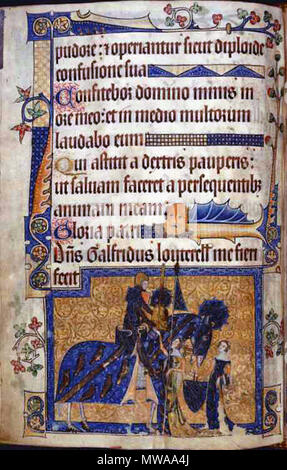 pudore: ⁊ operiantur sicut diploide
confusione sua
Confitebor domino nimis in
ore meo: et in medio multorum
laudabo eum
Qui astitit a dextris pauperis:
ut saluam faceret a persequentibȝ
animam meam
Gloria patri
Dñs Galfridus louterell me fieri
fecit
MWAA4J